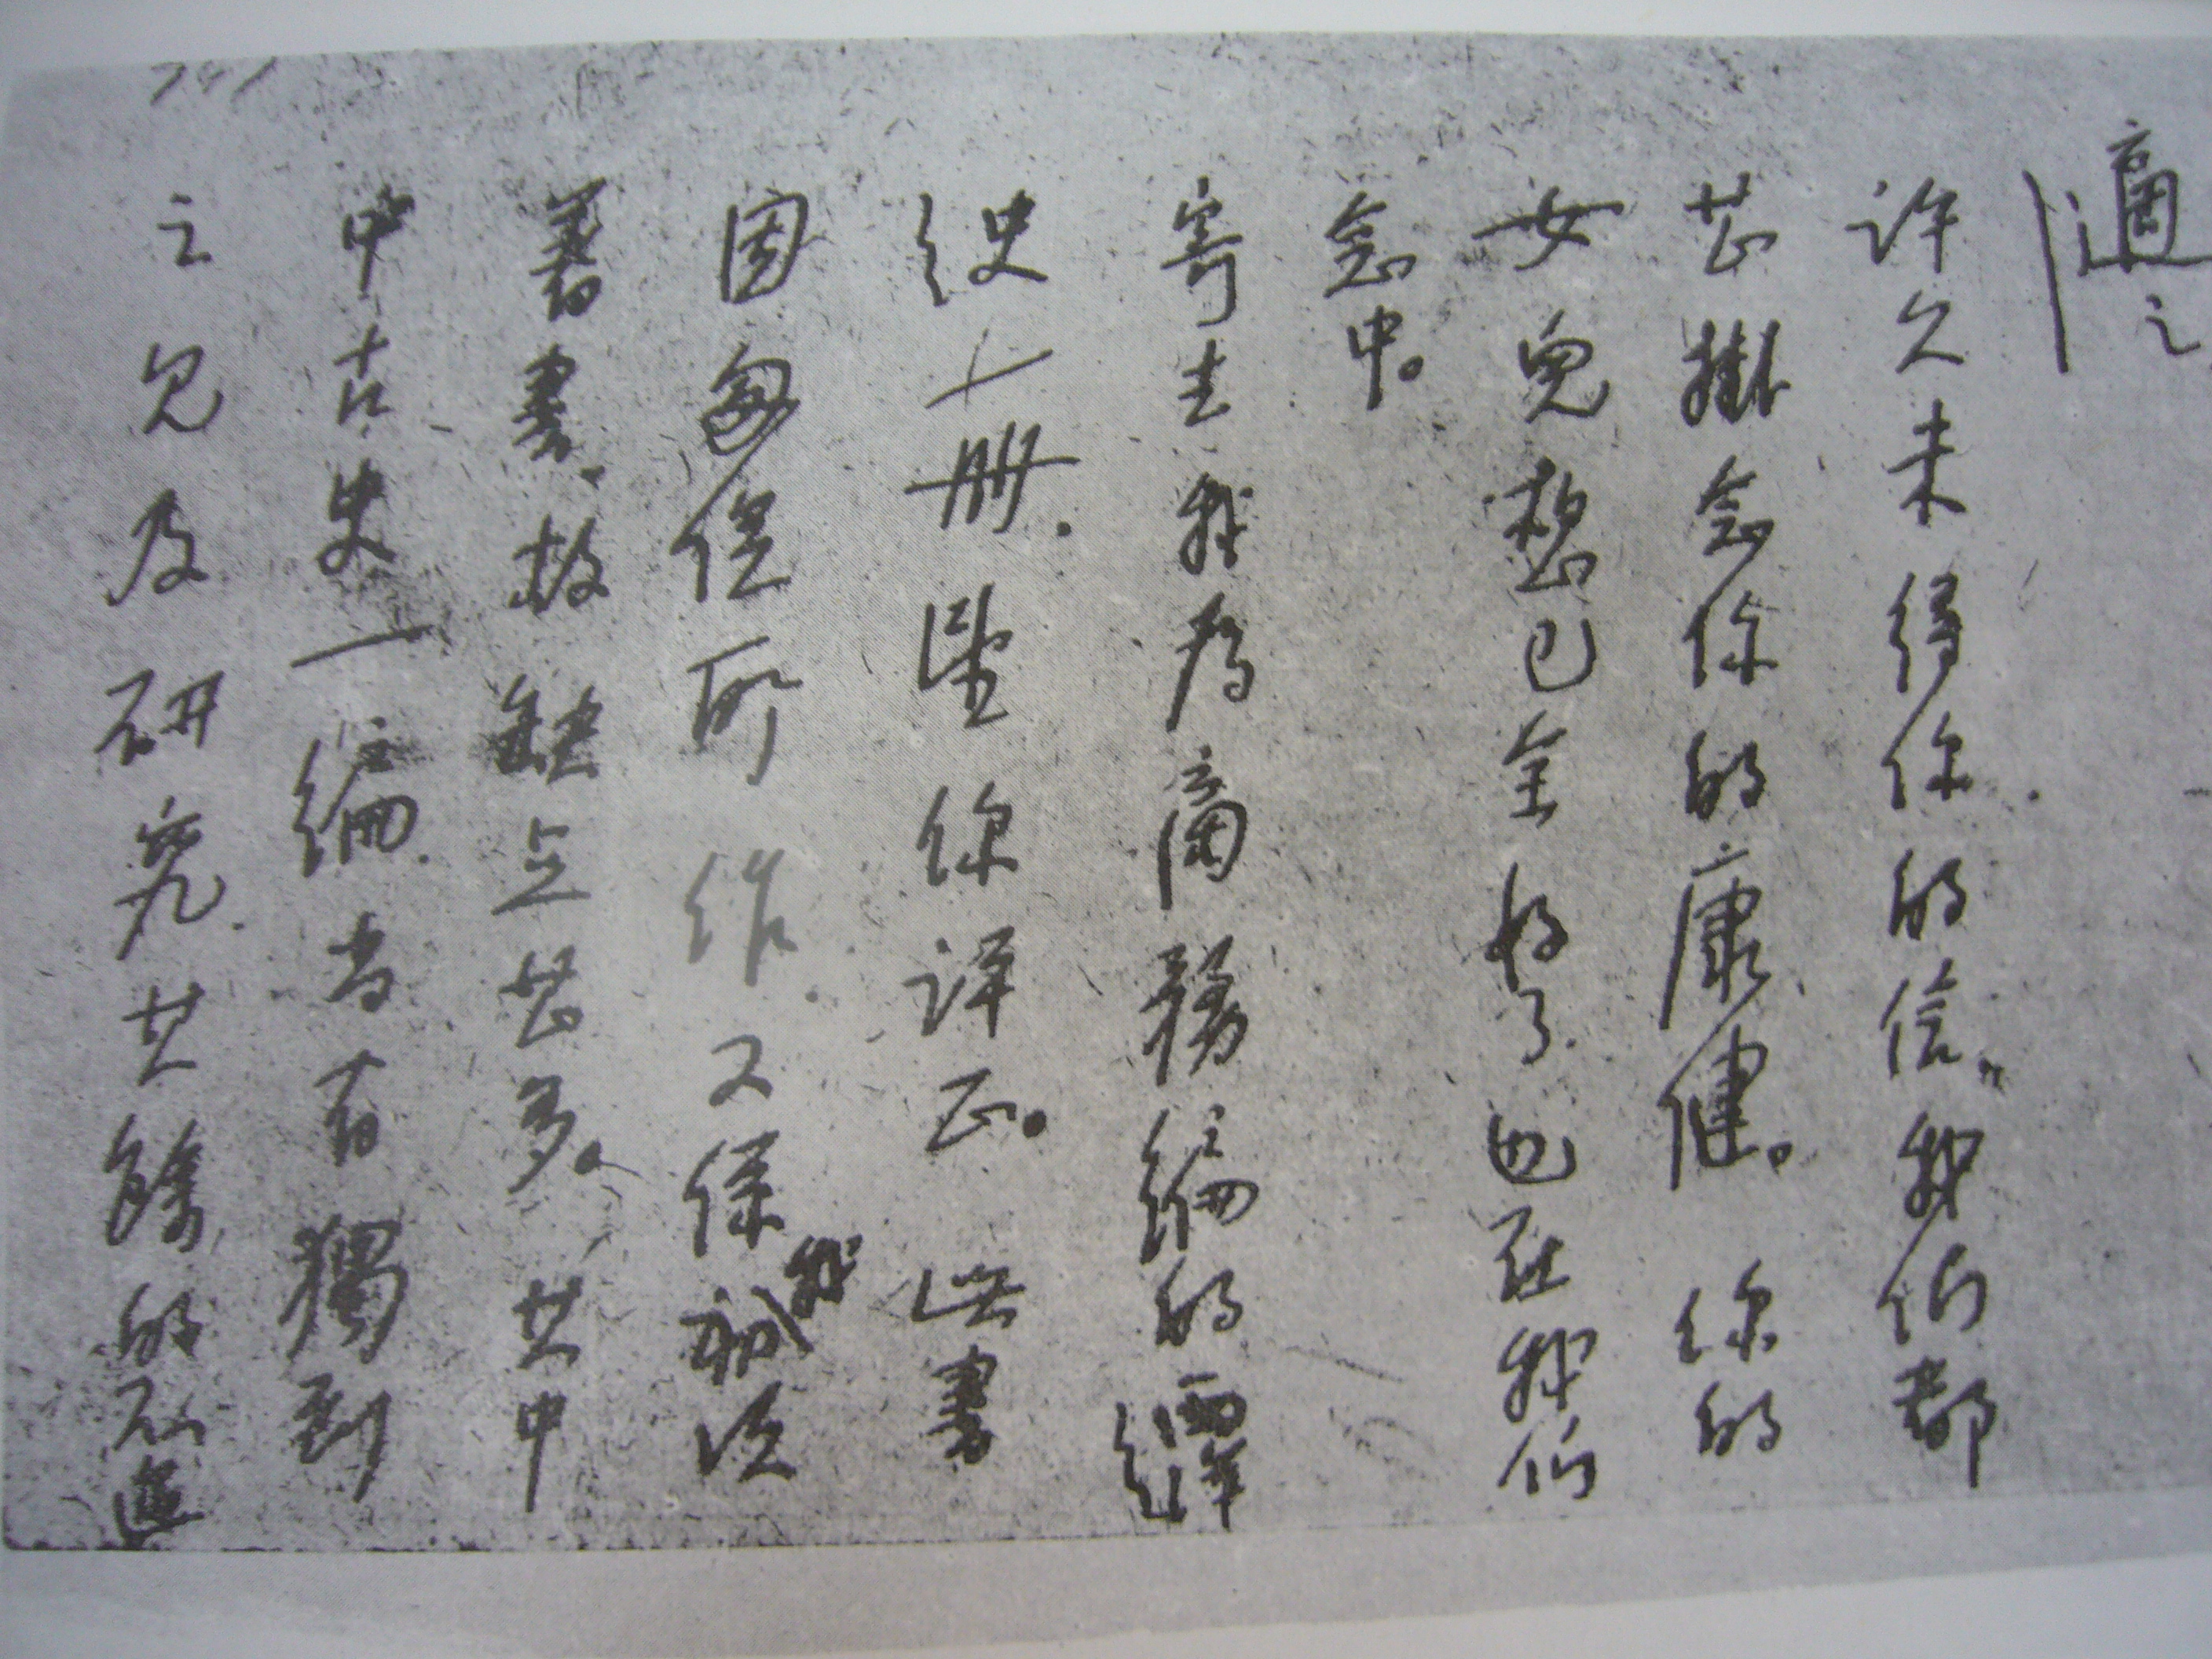 適之
許久未得你的信，我們都
甚掛念你的康健。你的
女兒想已全好了，也在我們
念中。
寄上我為商務編的西洋
史一冊，望你評正。此書
因匆促所作，又係我初次
著書，故缺點甚多。其中
中古史一編，尚有獨到
之見及研究，其餘的不過